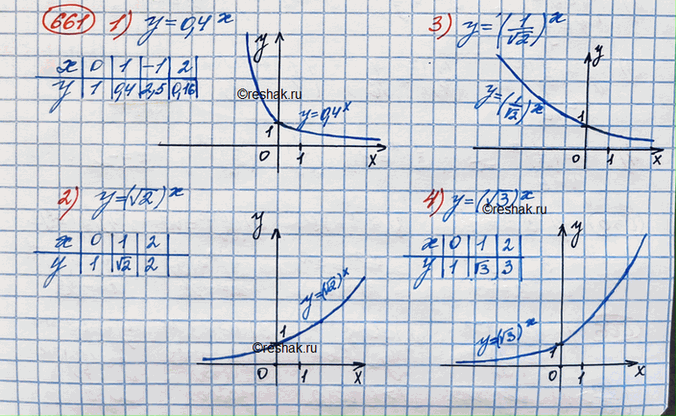 661 1) y = 0,4^x
x 0 1 -1 2
y 1 0,4 2,5 0,16
y
©reshak.ru
y = 0,4^x
1
0 1 x
3) y = (1/√2)^x
y
y = (1/√2)^x
1
0 1 x
2) y = (√2)^x
x 0 1 2
y 1 √2 2
y
y = (√2)^x
1
©reshak.ru
0 1 x
4) y = (√3)^x
©reshak.ru
x 0 1 2
y 1 √3 3
y
y = (√3)^x
1
0 1 x